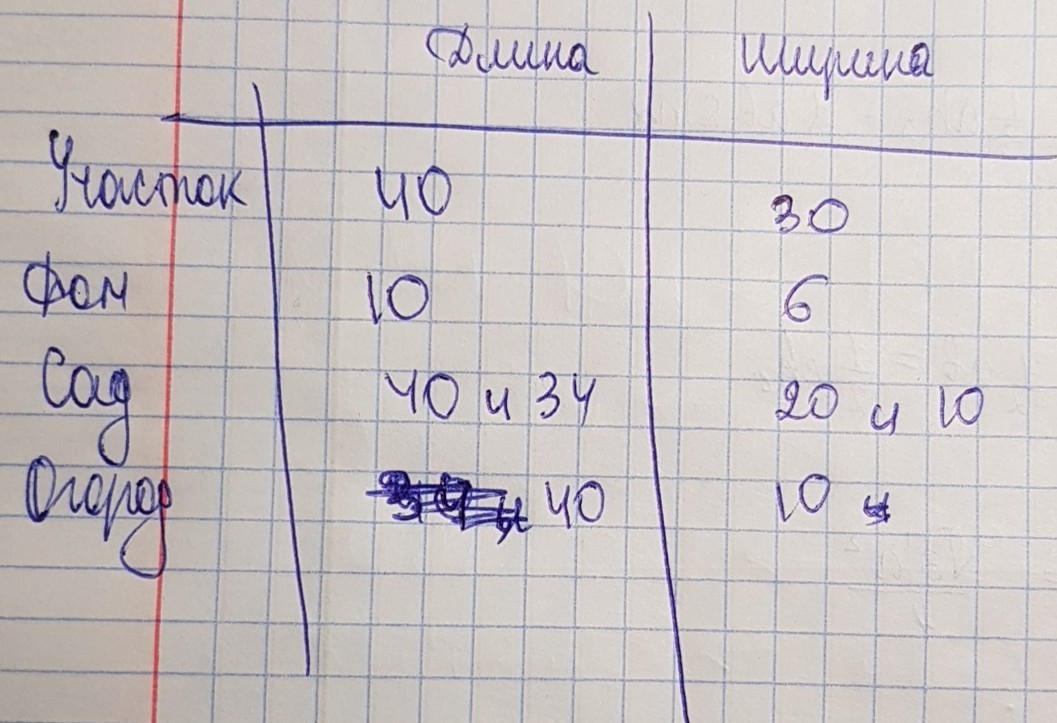 Длина Ширина
Участок 40 30
Дом 10 6
Сад 40 и 34 20 и 10
Огород 40 10